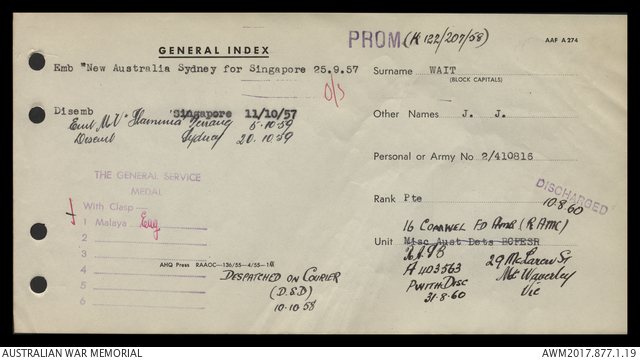 GENERAL INDEX
PROM (K 122/207/58)
AAF A 274
Emb "New Australia Sydney for Singapore 25.9.57
O/S
Disemb Singapore 11/10/57
Emb M.V. Flaminia Penang 5.10.59
Disemb Sydney 20.10.59
THE GENERAL SERVICE
MEDAL
With Clasp—
1 Malaya Eng
2
3
4
5
6
AHQ Press RAAOC—136/55—4/55—1
DESPATCHED ON COURIER
(D.S.D)
10.10.58
Surname WAIT
(BLOCK CAPITALS)
Other Names J. J.
Personal or Army No 2/410816
Rank Pte
DISCHARGED
10.8.60
16 COMWEL FD AMB (RAMC)
Unit Misc Aust Dets BCFESR
A 403563
P WITH DISC
31.8.60
29 McLaren St
Mt Waverley
Vic
AUSTRALIAN WAR MEMORIAL
AWM2017.877.1.19